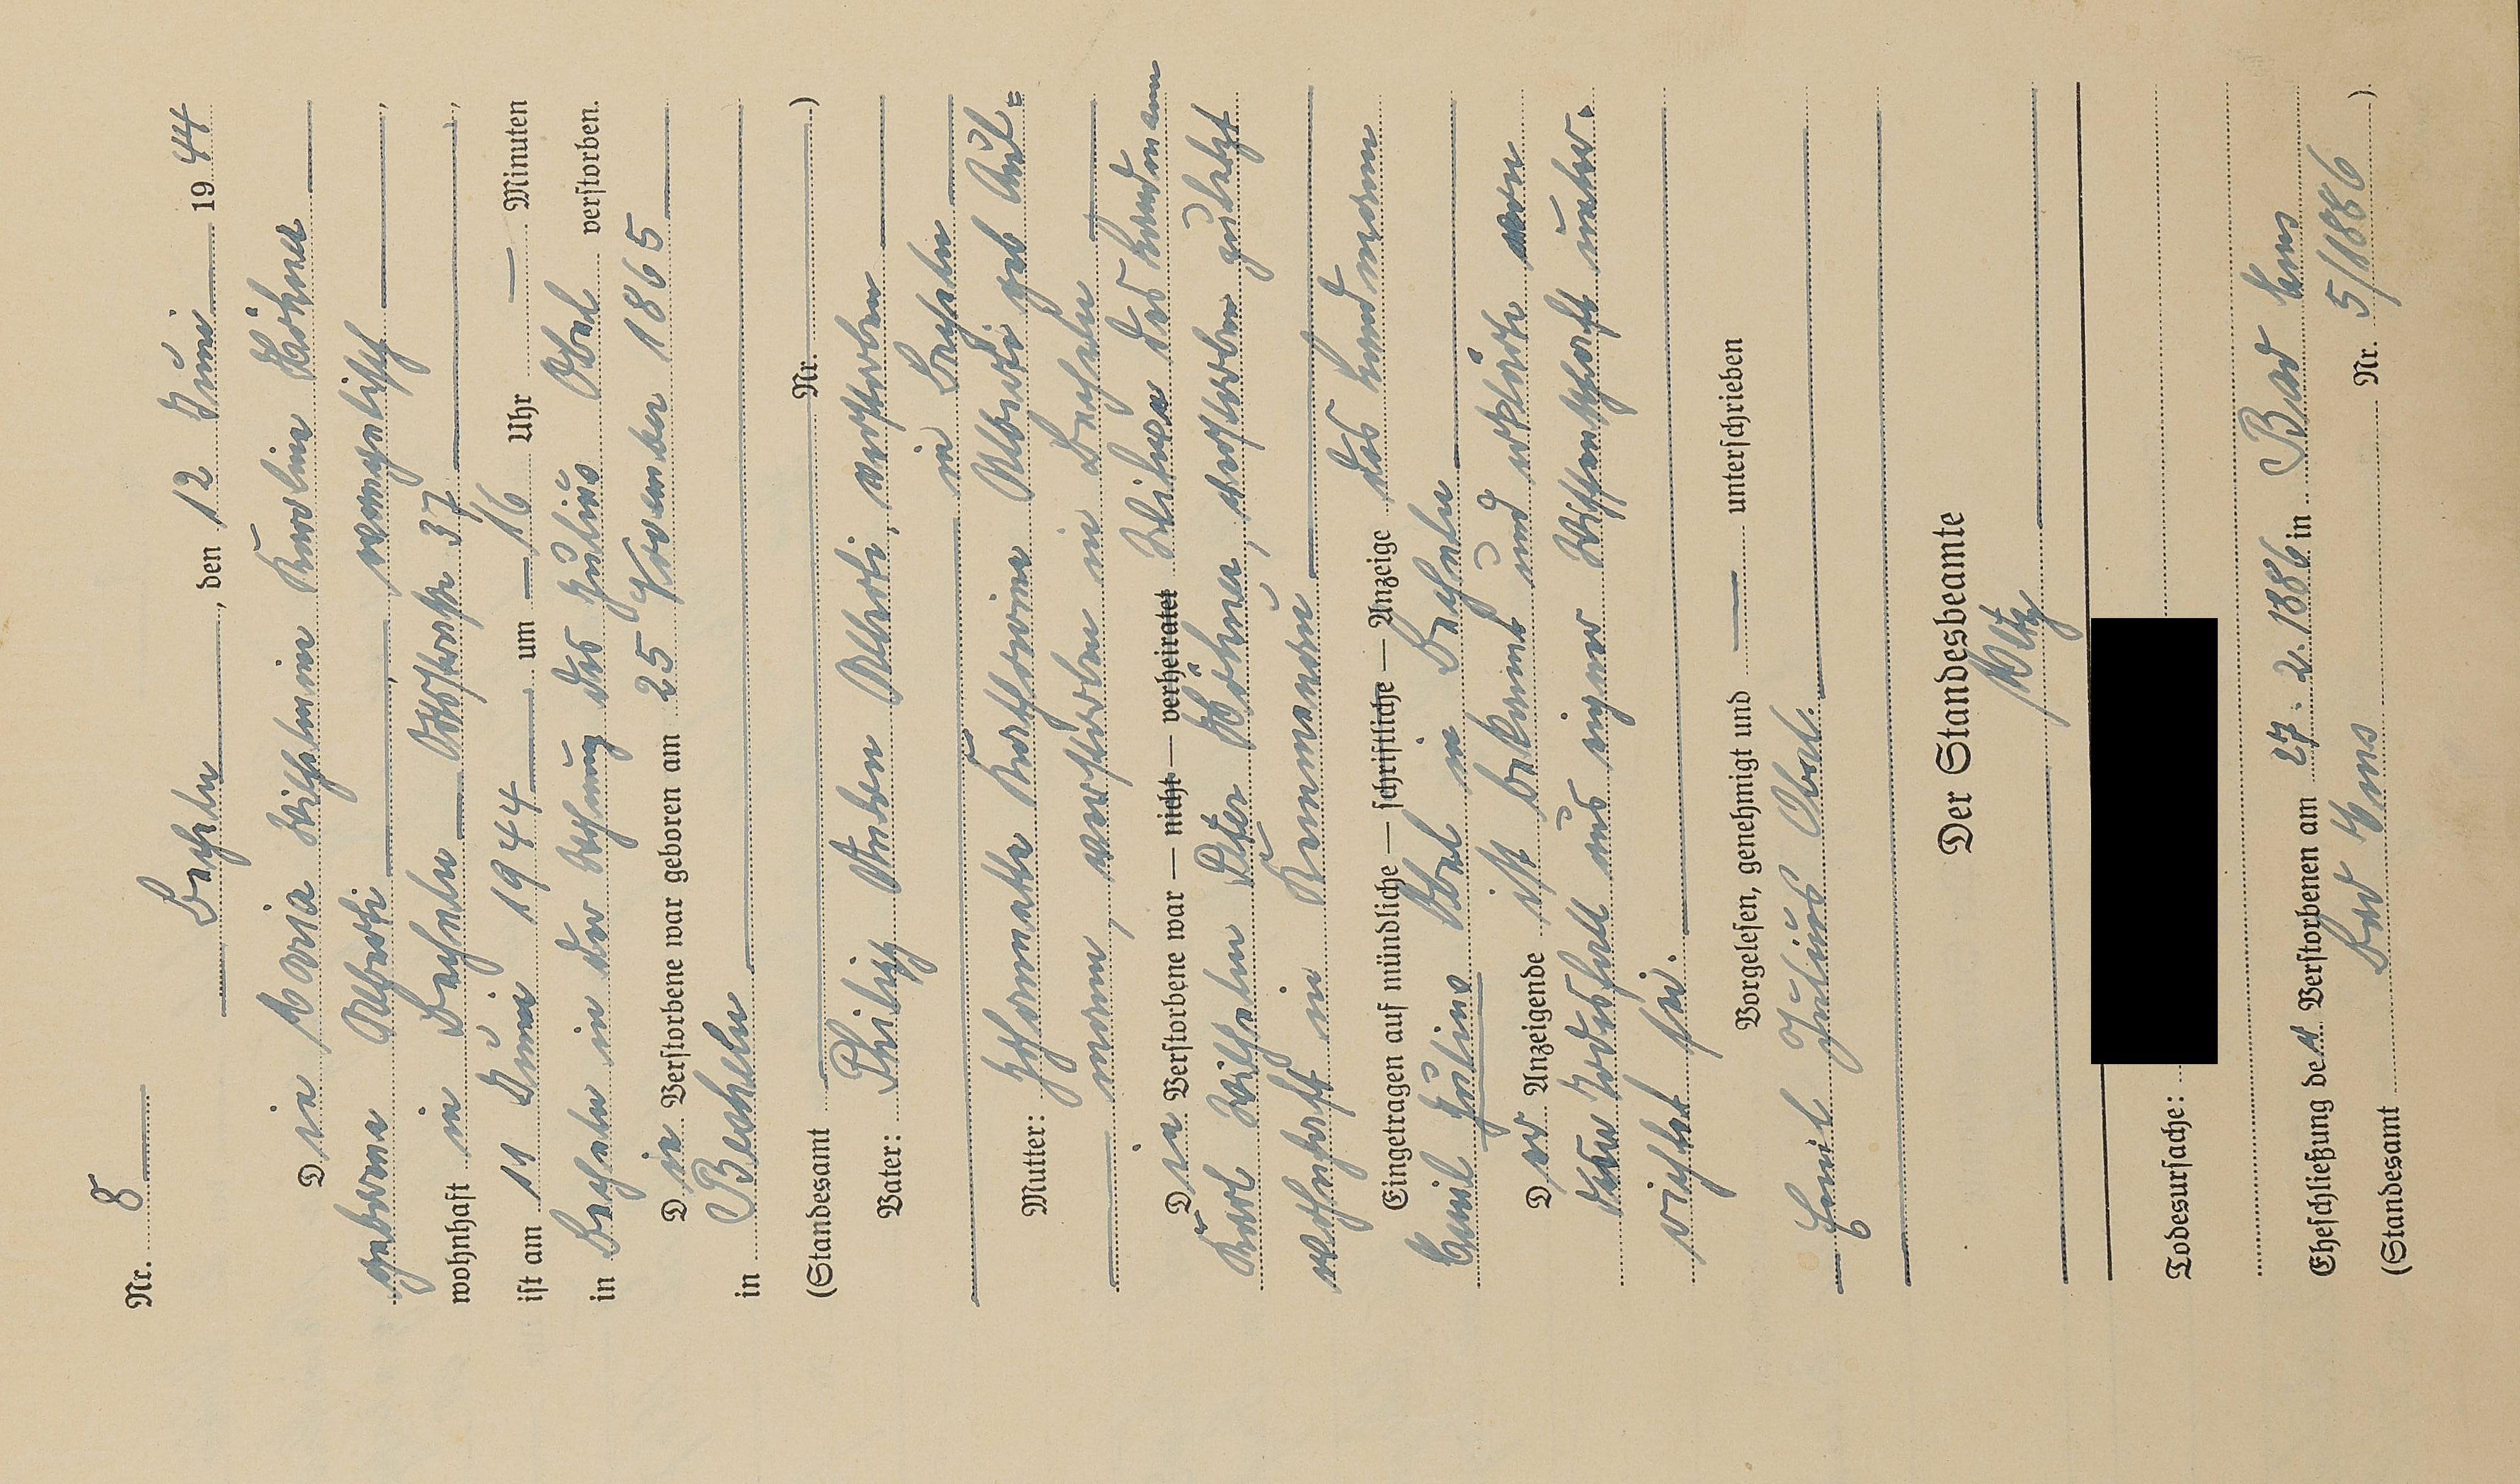 Nr. 8
Becheln, den 12 Juni 1944
Die Maria Wilhelmine Karoline Höhner
geborene Alberti, evangelisch,
wohnhaft in Becheln Ortsstraße 37,
ist am 11 Juni 1944 um 16 Uhr — Minuten
in Becheln in der Wohnung des Julius Obel verstorben.
Die Verstorbene war geboren am 25 November 1865
in Becheln
(Standesamt Nr. )
Vater: Philipp Anton Alberti, verstorben
in Becheln
Mutter: Johannette Katharina Alberti geb
mann, verstorben in Becheln
Die Verstorbene war — nicht — verheiratet Witwe des Landmann
Karl Wilhelm Peter Höhner, verstorben zuletzt
wohnhaft in Kemmenau
Eingetragen auf mündliche — schriftliche — Anzeige des Landmann
Emil Julius Obel in Becheln
Der Anzeigende ist bekannt und erklärte von
dem Todesfall aus eigner Wissenschaft unter-
richtet sei.
Vorgelesen, genehmigt und — unterschrieben
Emil Julius Obel.
Der Standesbeamte
Todesursache:
Eheschließung der Verstorbenen am 27. 2. 1886 in Bad Ems
(Standesamt Bad Ems Nr. 5/1886 ).